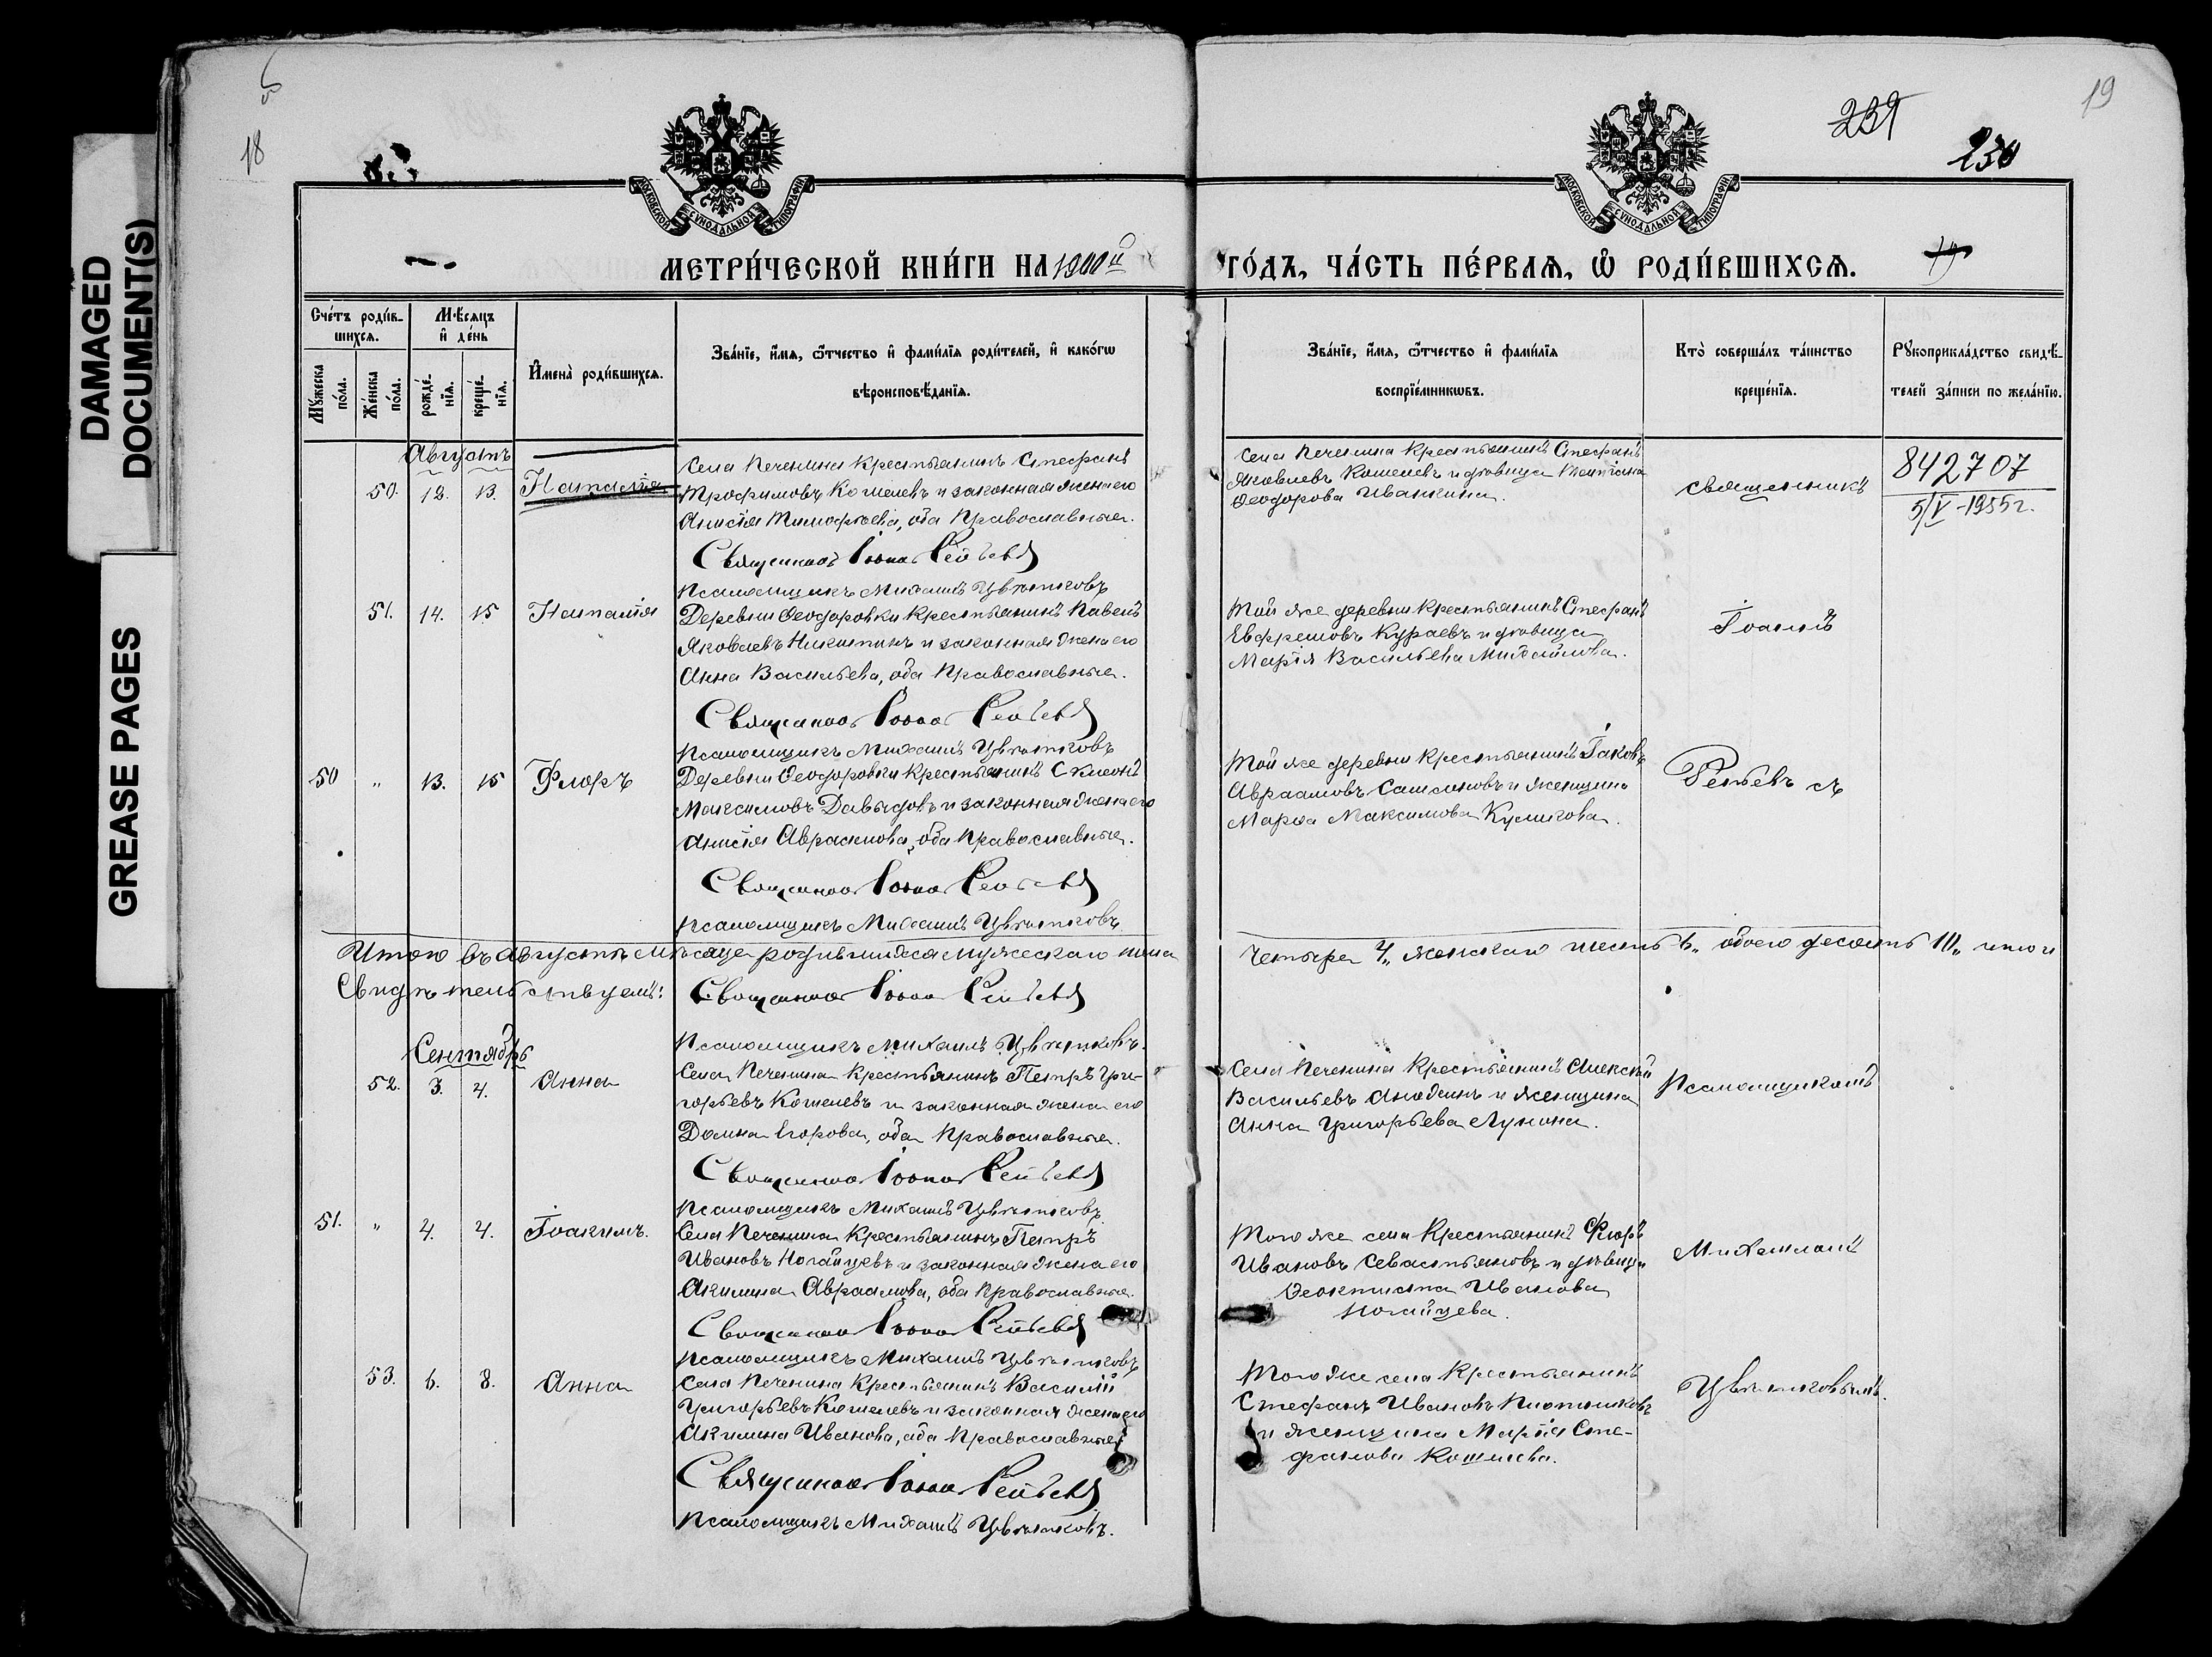 DAMAGED
DOCUMENT(S)
GREASE PAGES
18
19
239
230
19
МОСКОВСКОЙ СѴНОДАЛЬНОЙ ТИПОГРАФІИ
МОСКОВСКОЙ СѴНОДАЛЬНОЙ ТИПОГРАФІИ
МЕТРИ́ЧЕСКОЙ КНИ́ГИ НА 1900й
ГО́ДЪ, ЧА́СТЬ ПЕ́РВАЯ, Ѡ РОДИ́ВШИХСЯ.
Сче́тъ роди́в-
шихся.
Мѣ́сяцъ
и де́нь
Му́жеска
по́ла.
Же́нска
по́ла.
рожде́-
нїя.
креще́-
нїя.
Имена̀ роди́вшихся.
Зва́нїе, и́мя, ѻ́тчество и фами́лїя роди́телей, и како́гѡ
вѣроисповѣ́данїя.
Зва́нїе, и́мя, ѻ́тчество и фами́лїя
воспрїе́мникѡвъ.
Кто̀ соверша́лъ та́инство
креще́нїя.
Рукоприкла́дство свидѣ́-
телей за́писи по жела́нїю.
Августъ
50. 12. 13. Наталія
Села Печенина крестьянинъ Стефанъ
Трофимовъ Кошелевъ и законная жена его
Анисія Тимофѣева, оба Православные.
Священникъ Іоаннъ Рельевъ
Псаломщикъ Михаилъ Цвѣтковъ
Села Печенина крестьянинъ Стефанъ
Яковлевъ Кошелевъ и дѣвица Татіана
Ѳеодорова Иванкина.
священникъ
842707
5/V-1955г.
51. 14. 15 Наталія
Деревни Ѳеодоровки крестьянинъ Павелъ
Яковлевъ Никитинъ и законная жена его
Анна Васильева, оба Православные.
Священникъ Іоаннъ Рельевъ
Псаломщикъ Михаилъ Цвѣтковъ
Той же деревни крестьянинъ Стефанъ
Евфремовъ Кураевъ и дѣвица
Марія Васильева Михайлова.
Іоаннъ
50 " 13. 15 Флоръ
Деревни Ѳеодоровки крестьянинъ Симеонъ
Максимовъ Давыдовъ и законная жена его
Анисія Авраамова, оба Православные.
Священникъ Іоаннъ Рельевъ
Псаломщикъ Михаилъ Цвѣтковъ
Той же деревни крестьянинъ Іаковъ
Авраамовъ Самсоновъ и женщина
Марѳа Максимова Куликова.
Рельевъ съ
Итого въ Августѣ мѣсяцѣ родившихся мужескаго пола
четыре 4„ женскаго шесть 6„ обоего десять 10„ итого
Свидѣтельствуемъ: Священникъ Іоаннъ Рельевъ
Псаломщикъ Михаилъ Цвѣтковъ.
Сентябрь
52. 3. 4. Анна
Села Печенина крестьянинъ Петръ Гри-
горьевъ Кошелевъ и законная жена его
Домна Егорова, оба Православные.
Священникъ Іоаннъ Рельевъ
Псаломщикъ Михаилъ Цвѣтковъ
Села Печенина крестьянинъ Алексѣй
Васильевъ Анохинъ и женщина
Анна Григорьева Лунина.
Псаломщикомъ
51. " 4. 4. Іоакимъ.
Села Печенина крестьянинъ Петръ
Ивановъ Ногайцевъ и законная жена его
Акилина Авраамова, оба Православные.
Священникъ Іоаннъ Рельевъ
Псаломщикъ Михаилъ Цвѣтковъ
Того же села крестьянинъ Флоръ
Ивановъ Севастьяновъ и дѣвица
Ѳеоктиста Иванова
Ногайцева.
Михаиломъ
53. 6. 8. Анна
Села Печенина крестьянинъ Василій
Григорьевъ Кошелевъ и законная жена его
Акилина Иванова, оба Православные
Священникъ Іоаннъ Рельевъ
Псаломщикъ Михаилъ Цвѣтковъ.
Того же села крестьянинъ
Стефанъ Ивановъ Плотниковъ
и женщина Марія Сте-
фанова Кошелева.
Цвѣтковымъ.